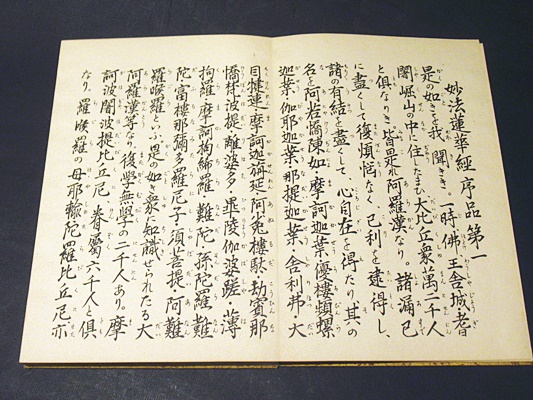 妙法蓮華經序品第一
是の如きを我れ聞きき。一時佛王舎城耆
闍崛山の中に住したまひ大比丘衆萬二千人
と倶なりき皆是れ阿羅漢なり。諸漏已
に盡くして復煩惱なく、己利を逮得し、
諸の有結を盡して、心自在を得たり其の
名を阿若憍陳如・摩訶迦葉優樓頻螺
迦葉・伽耶迦葉・那提迦葉・舎利弗・大
目犍連・摩訶迦旃延・阿㝹樓駄・劫賓那
憍梵波提・離波多・畢陵伽婆蹉・薄
拘羅・摩訶拘絺羅・難陀・孫陀羅難
陀・富樓那彌多羅尼子・須菩提・阿難
羅睺羅といふ是の如き衆に知識せられたる大
阿羅漢等なり。復學無學の二千人あり。摩
訶波闍波提比丘尼 眷屬六千人と倶
なり。羅睺羅の母耶輸陀羅比丘尼亦